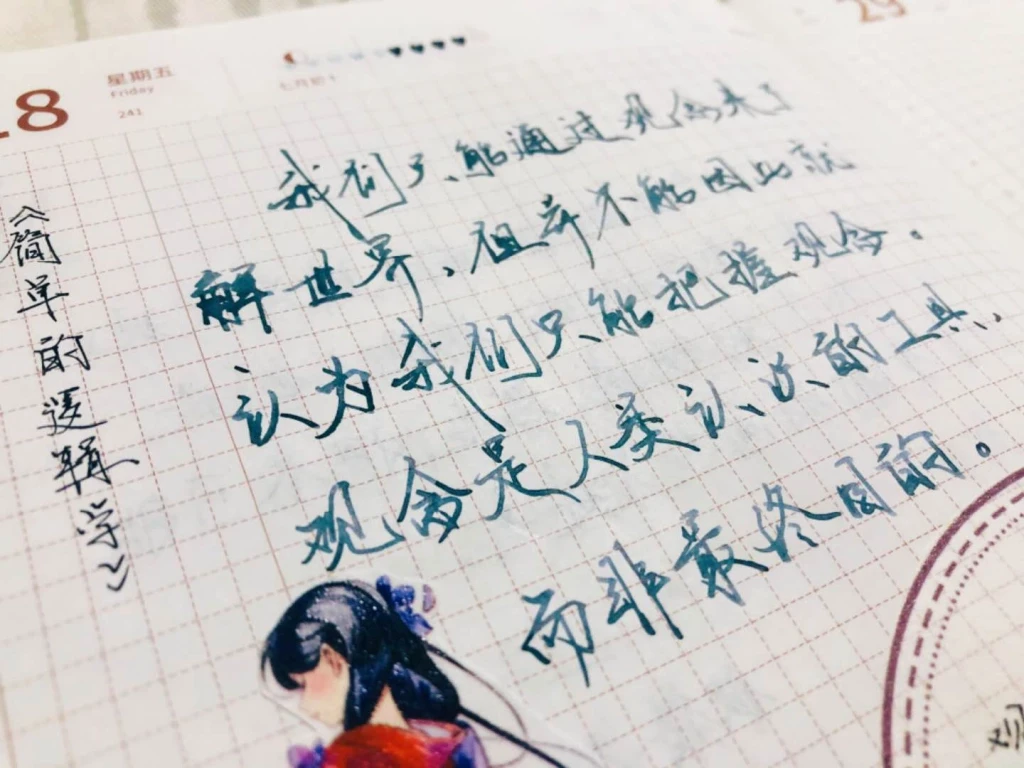 28
星期五
Friday
241
29
我们只能通过观念来了
解世界,但并不能因此就
认为我们只能把握观念。
观念是人类认识的工具,
而非最终目的。
《简单的逻辑学》